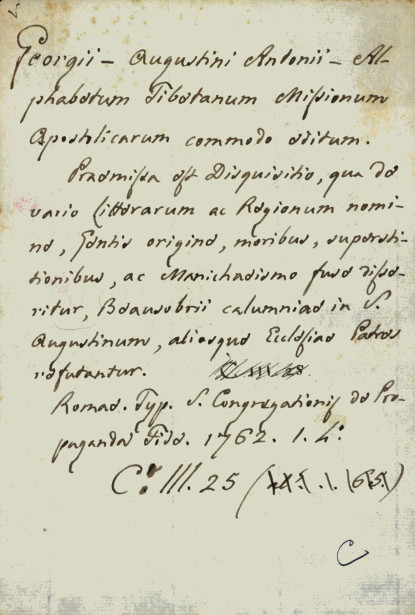 Georgii – Augustini Antonii – Al-
phabetum Tibetanum Missionum
Apostolicarum commodo editum.
Praemissa est Disquisitio, qua de
vario litterarum ac Regionum nomi-
ne, Gentis origine, moribus, supersti-
tionibus, ac Manichaeismo fuse disse-
ritur, Beausobrii calumniae in S.
Augustinum, aliosque Ecclesiae Patres
refutantur.
Romae. Typ. S. Congregationis de Pro-
paganda Fide. 1762. 1. 4.º
C. III. 25
C